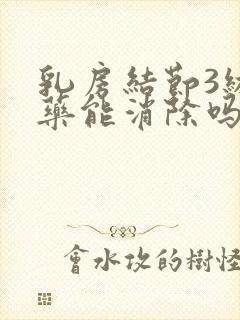 乳房結節3級
藥能消除嗎
會水攻的樹怪